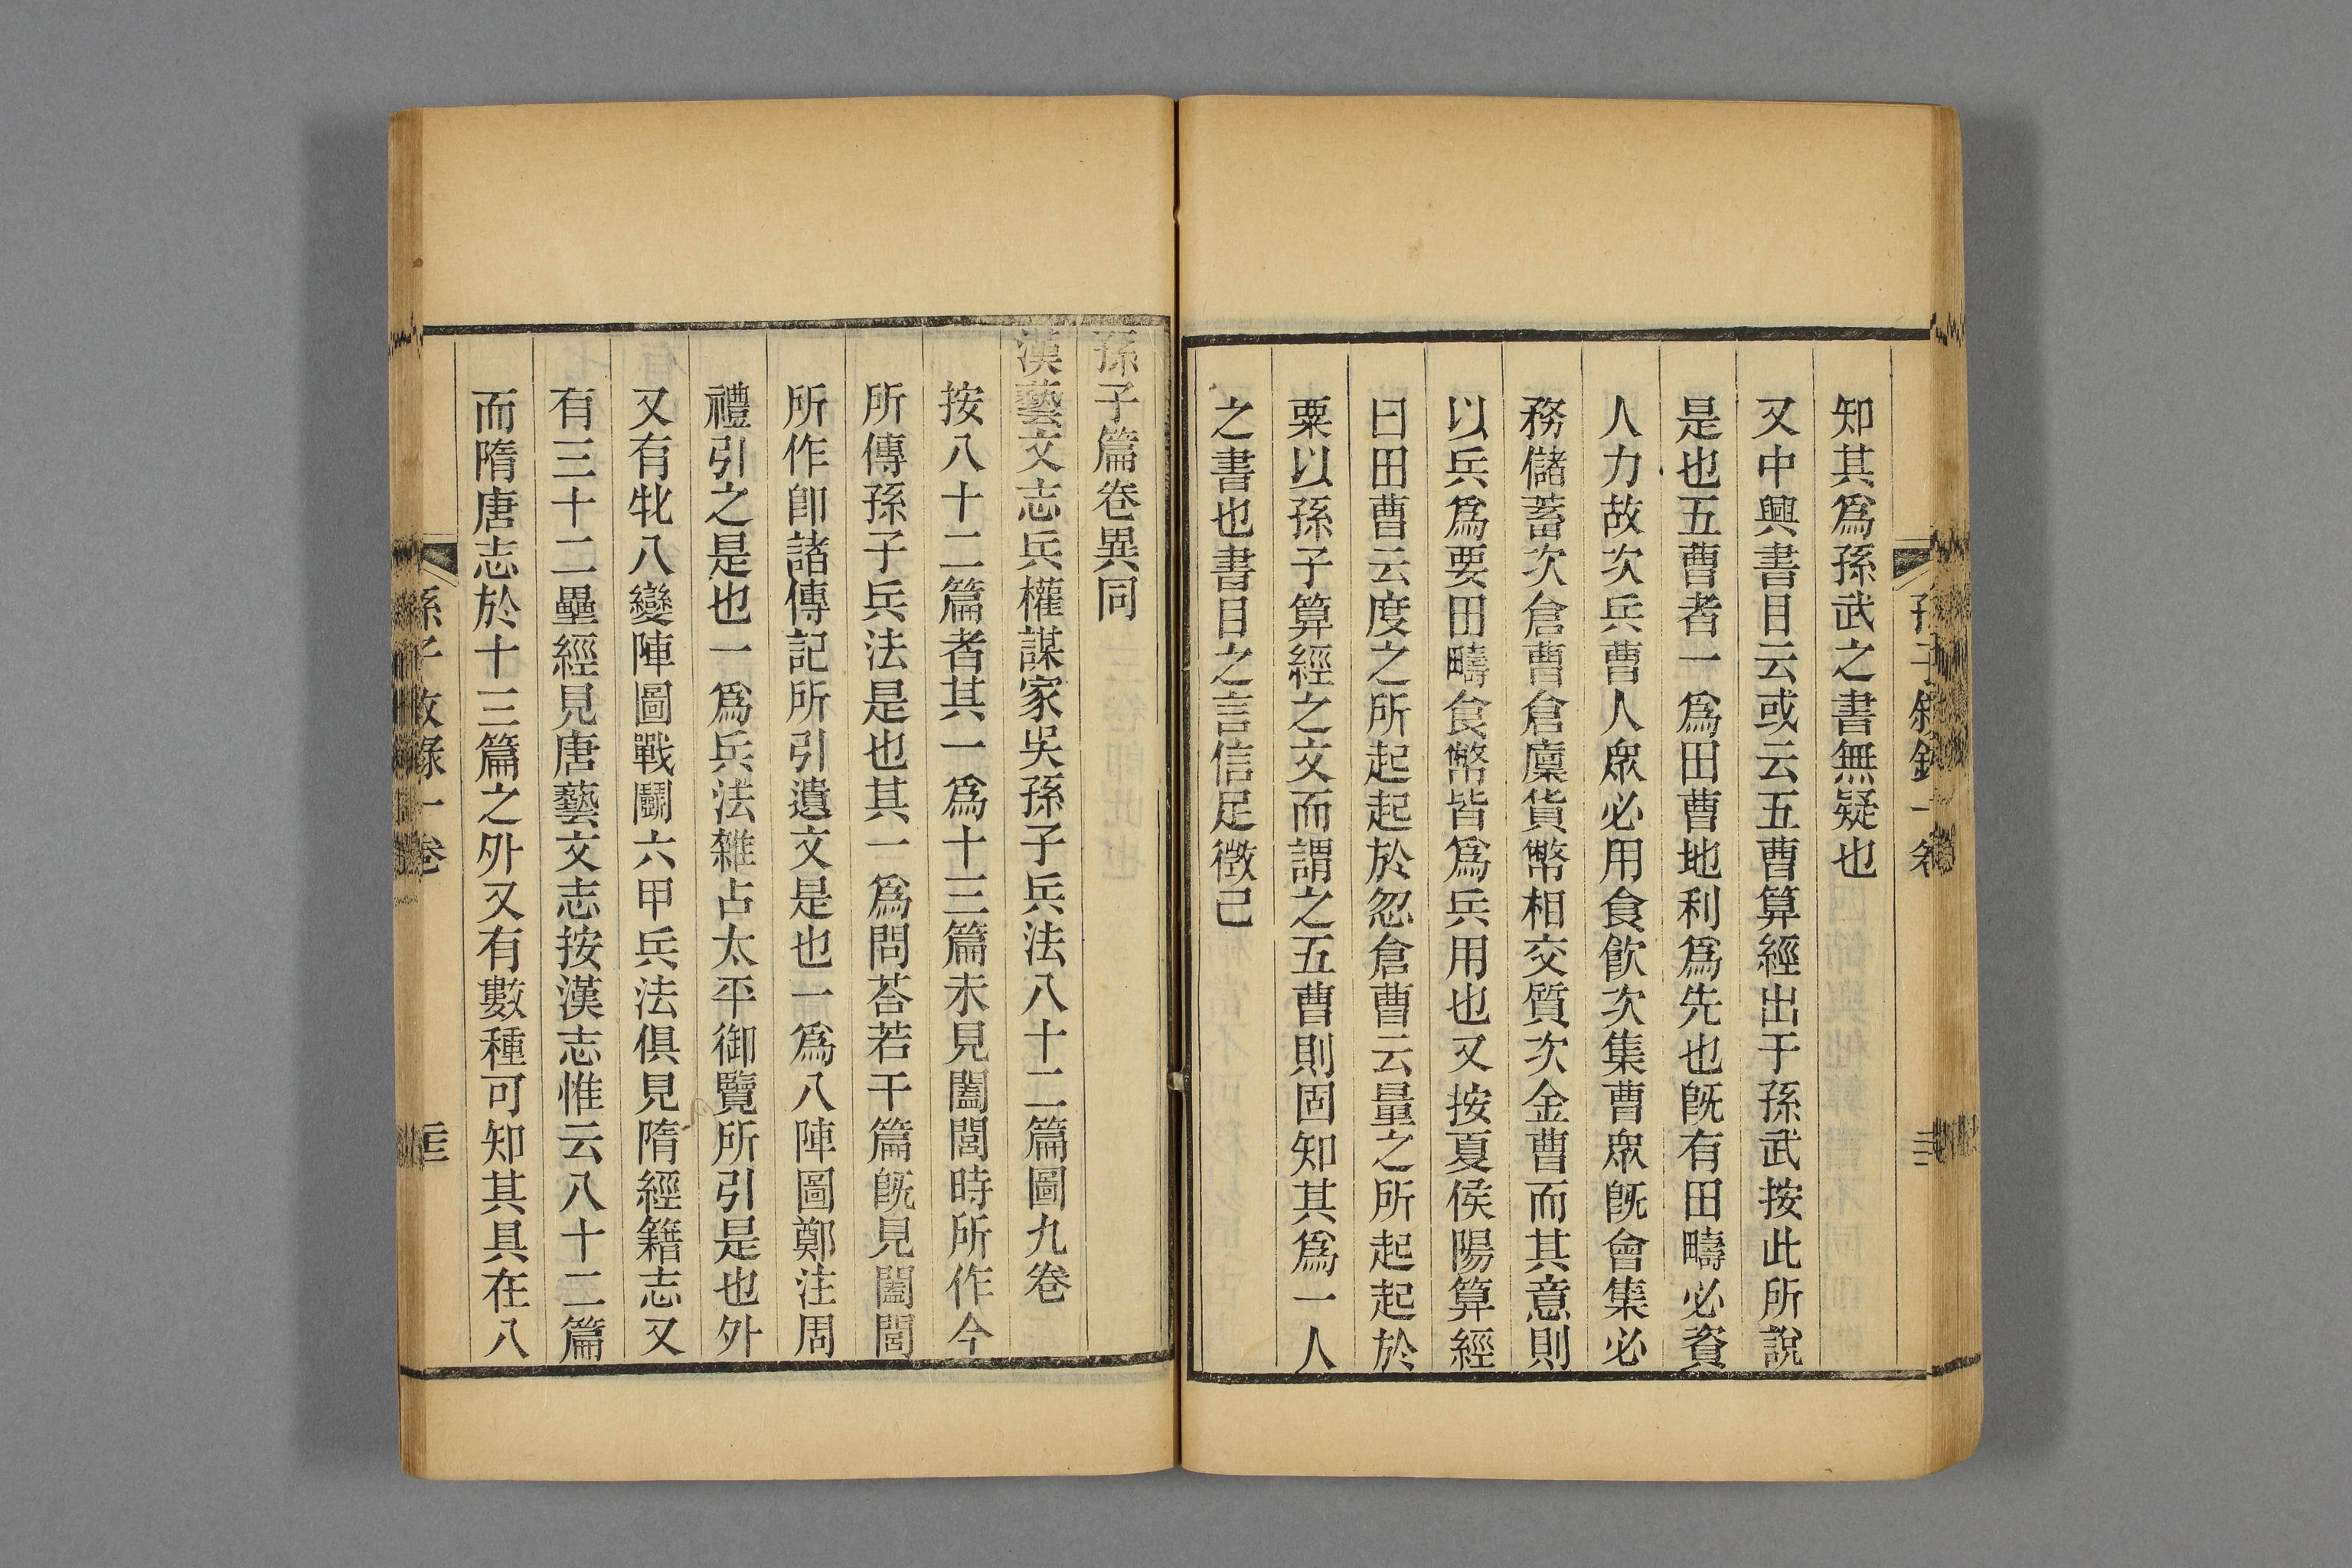 知其爲孫武之書無疑也
又中興書目云或云五曹算經出于孫武按此所說
是也五曹者一爲田曹地利爲先也旣有田疇必資
人力故次兵曹人衆必用食飮次集曹衆旣會集必
務儲蓄次倉曹倉廩貨幣相交質次金曹而其意則
以兵爲要田疇食幣皆爲兵用也又按夏侯陽算經
曰田曹云度之所起起於忽倉曹云量之所起起於
粟以孫子算經之文而謂之五曹則固知其爲一人
之書也書目之言信足徵已
孫子篇卷異同
漢藝文志兵權謀家吳孫子兵法八十二篇圖九卷
按八十二篇者其一爲十三篇未見闔閭時所作今
所傳孫子兵法是也其一爲問荅若干篇旣見闔閭
所作卽諸傳記所引遺文是也一爲八陣圖鄭注周
禮引之是也一爲兵法雜占太平御覽所引是也外
又有牝八變陣圖戰鬭六甲兵法俱見隋經籍志又
有三十二壘經見唐藝文志按漢志惟云八十二篇
而隋唐志於十三篇之外又有數種可知其具在八